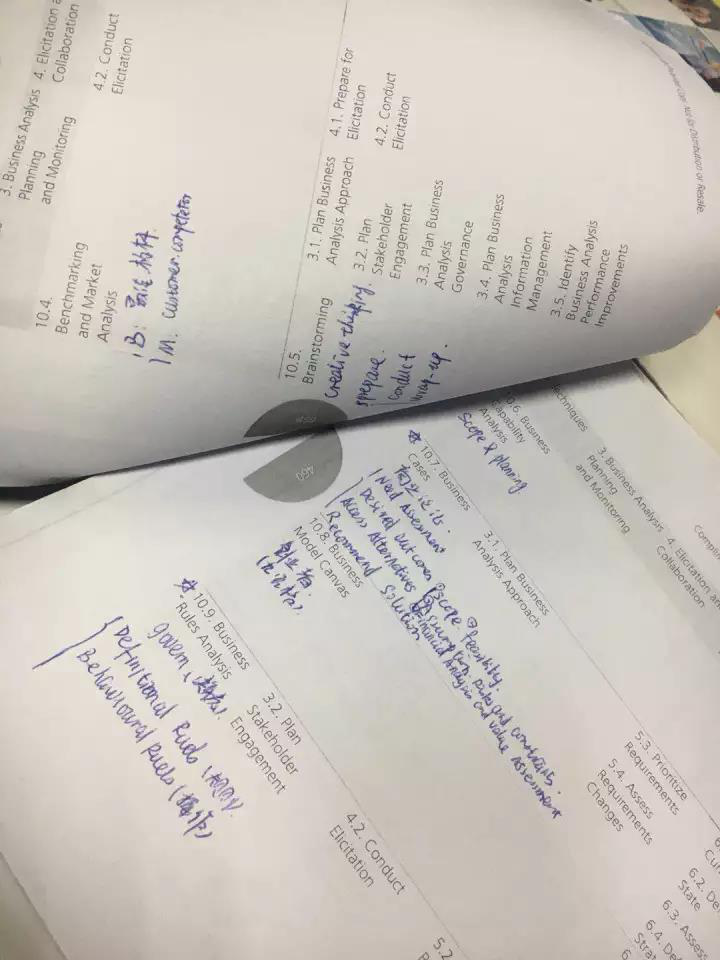 3. Business Analysis
Planning
and Monitoring
4. Elicitation a
Collaboration
4.2. Conduct
Elicitation
10.4.
Benchmarking
and Market
Analysis
B:
M: customer. competetor
10.5.
Brainstorming
creative thinking.
prepare.
Conduct
wrap-up.
3.1. Plan Business
Analysis Approach
3.2. Plan
Stakeholder
Engagement
3.3. Plan Business
Analysis
Governance
3.4. Plan Business
Analysis
Information
Management
3.5. Identify
Business Analysis
Performance
Improvements
4.1. Prepare for
Elicitation
4.2. Conduct
Elicitation
Not for Distribution or Resale
460
Techniques
3. Business Analysis
Planning
and Monitoring
4. Elicitation an
Collaboration
10.6. Business
Capability
Analysis
Scope & planning
10.7. Business
Cases
Need Assessment
Desired outcomes
Assess Alternatives
Recommend Solution
①scope ②feasibility.
③Assumption. risks and constraints.
④Financial Analysis and value Assessment
3.1. Plan Business
Analysis Approach
5.3. Prioritize
Requirements
5.4. Assess
Requirements
Changes
10.8. Business
Model Canvas
10.9. Business
Rules Analysis
govern
Definitional Rules
Behavioural Rules
3.2. Plan
Stakeholder
Engagement
4.2. Conduct
Elicitation
5.2
6.2. De
State
6.3. Assess
6.4. De
Strat